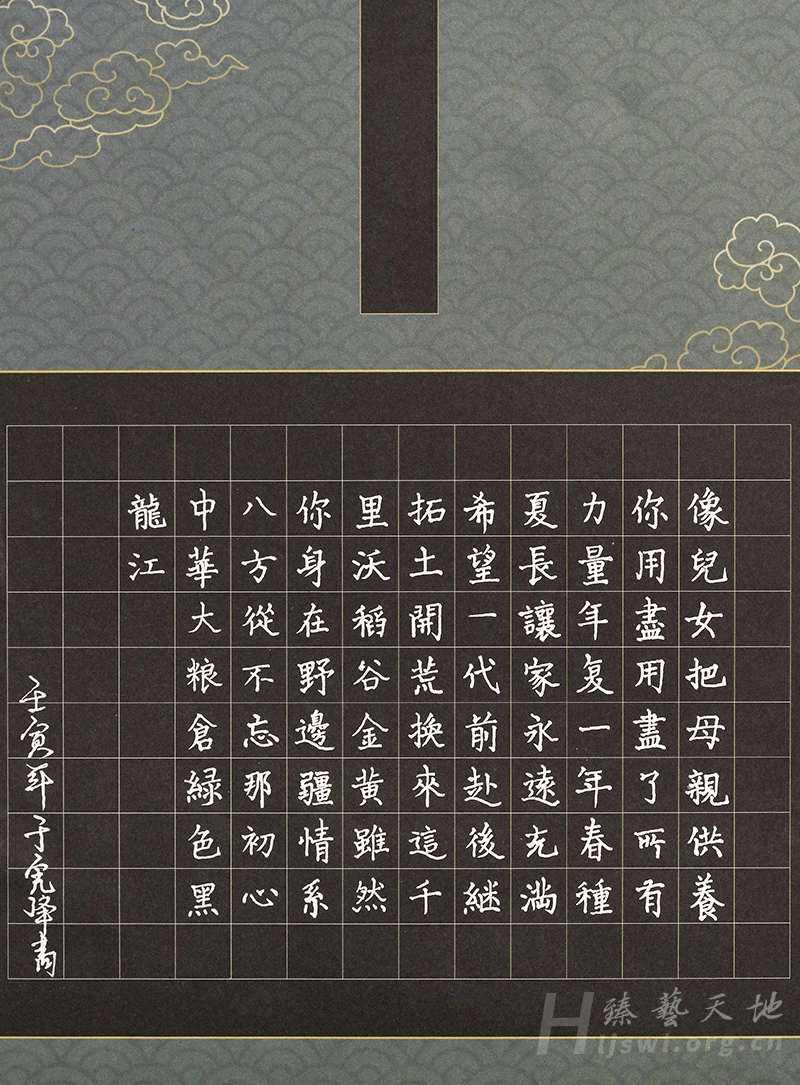 像兒女把母親供養
你用盡用盡了所有
力量年复一年春種
夏長讓家永遠充滿
希望一代前赴後継
拓土開荒換來這千
里沃稻谷金黄雖然
你身在野邊疆情系
八方從不忘那初心
中華大粮倉緑色黑
龍江
壬寅年于憲峰書
臻藝天地
Hljswl.org.cn